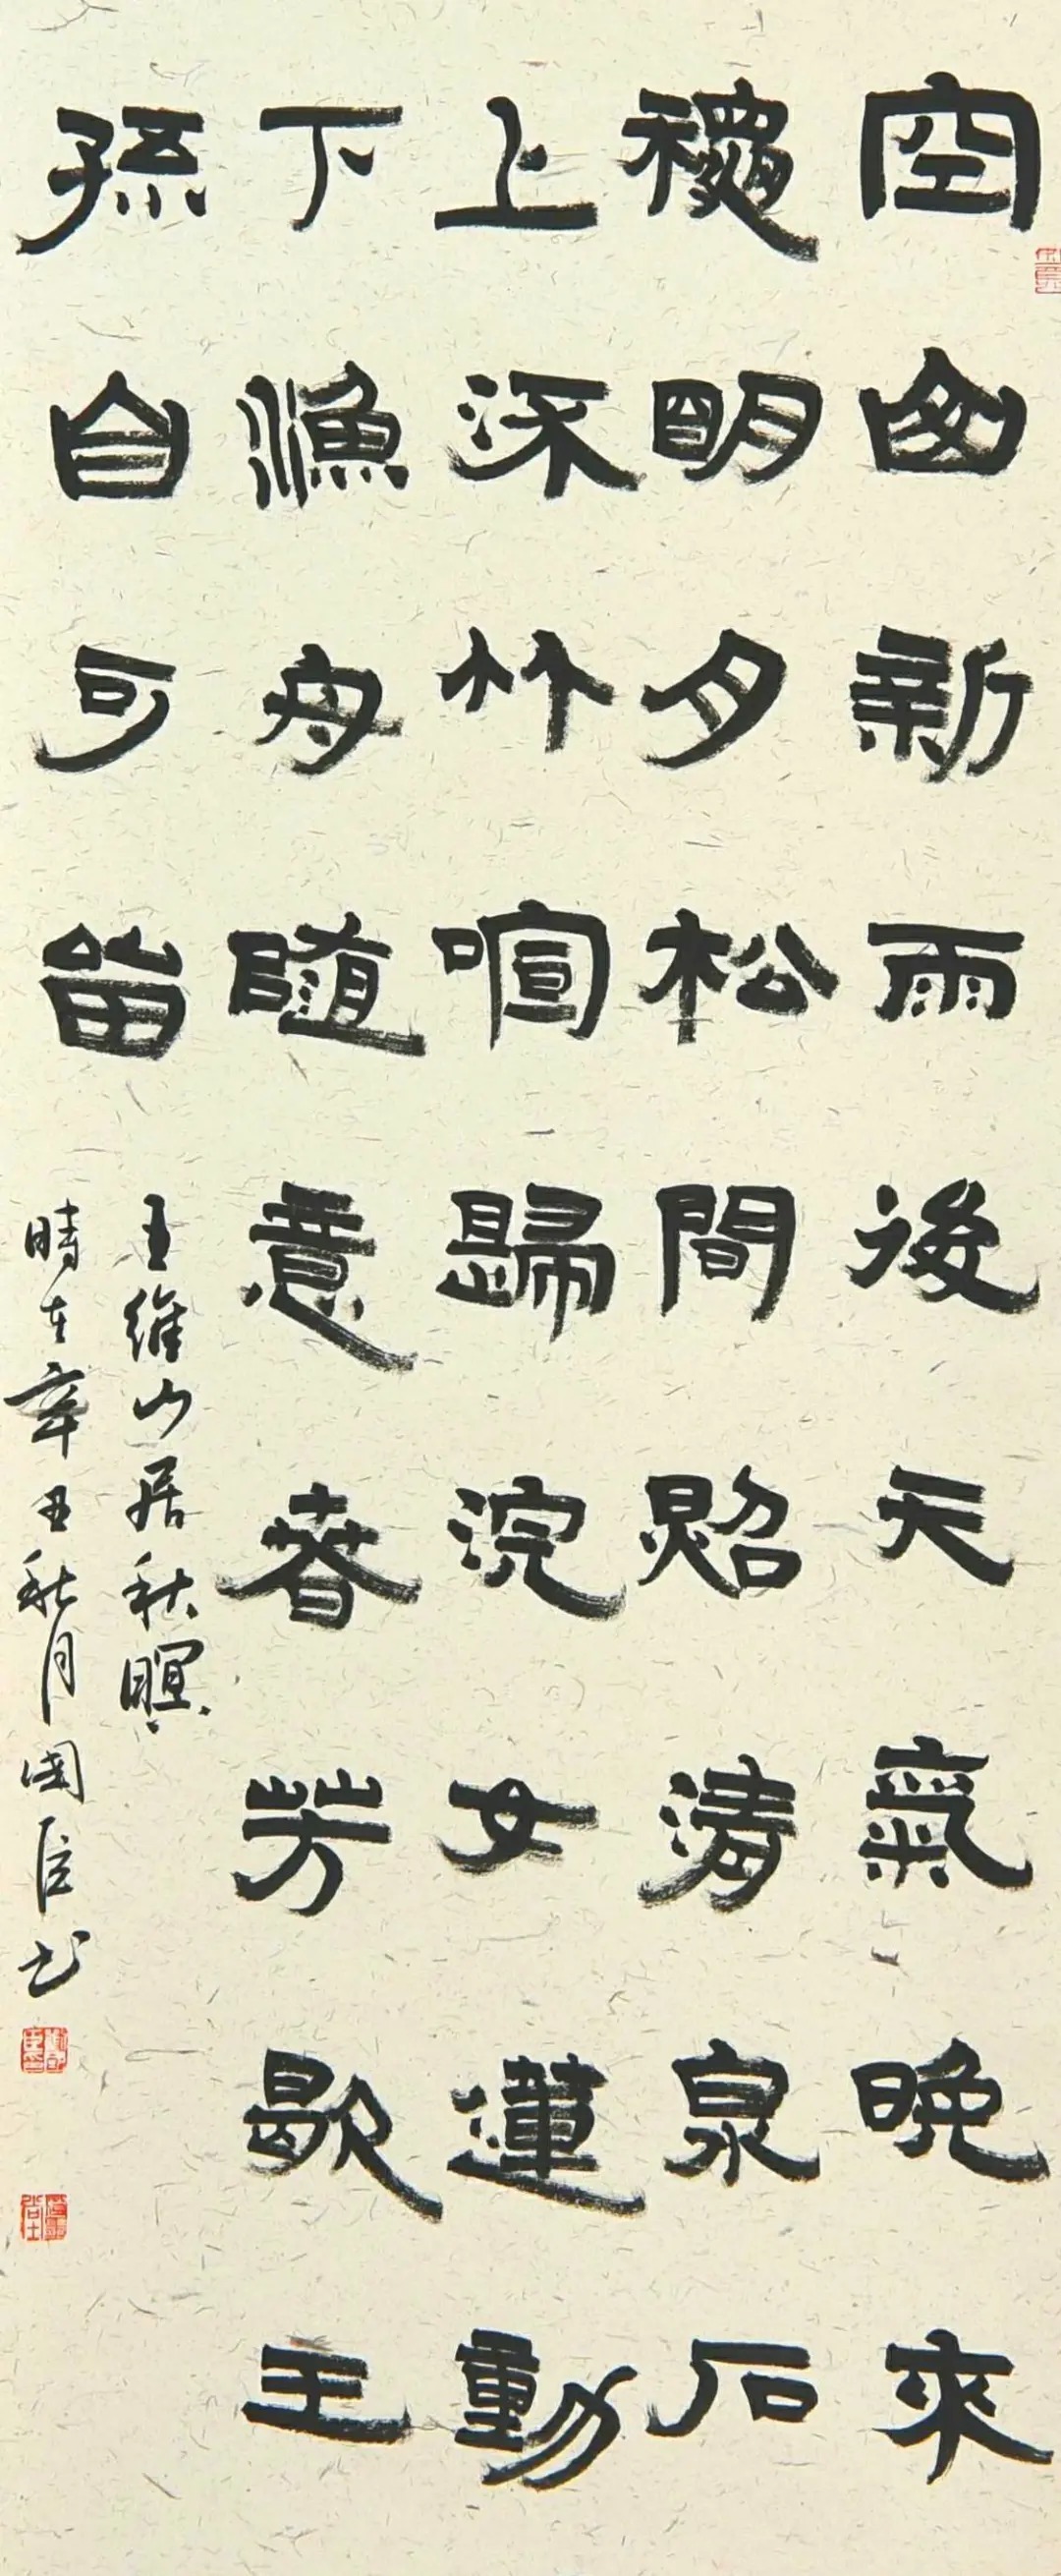 空山新雨後天氣晚來
龝明月松間照清泉石
上流竹喧歸浣女蓮動
下漁舟隨意春芳歇王
孫自可留
王維山居秋暝
時在辛丑秋月國臣书